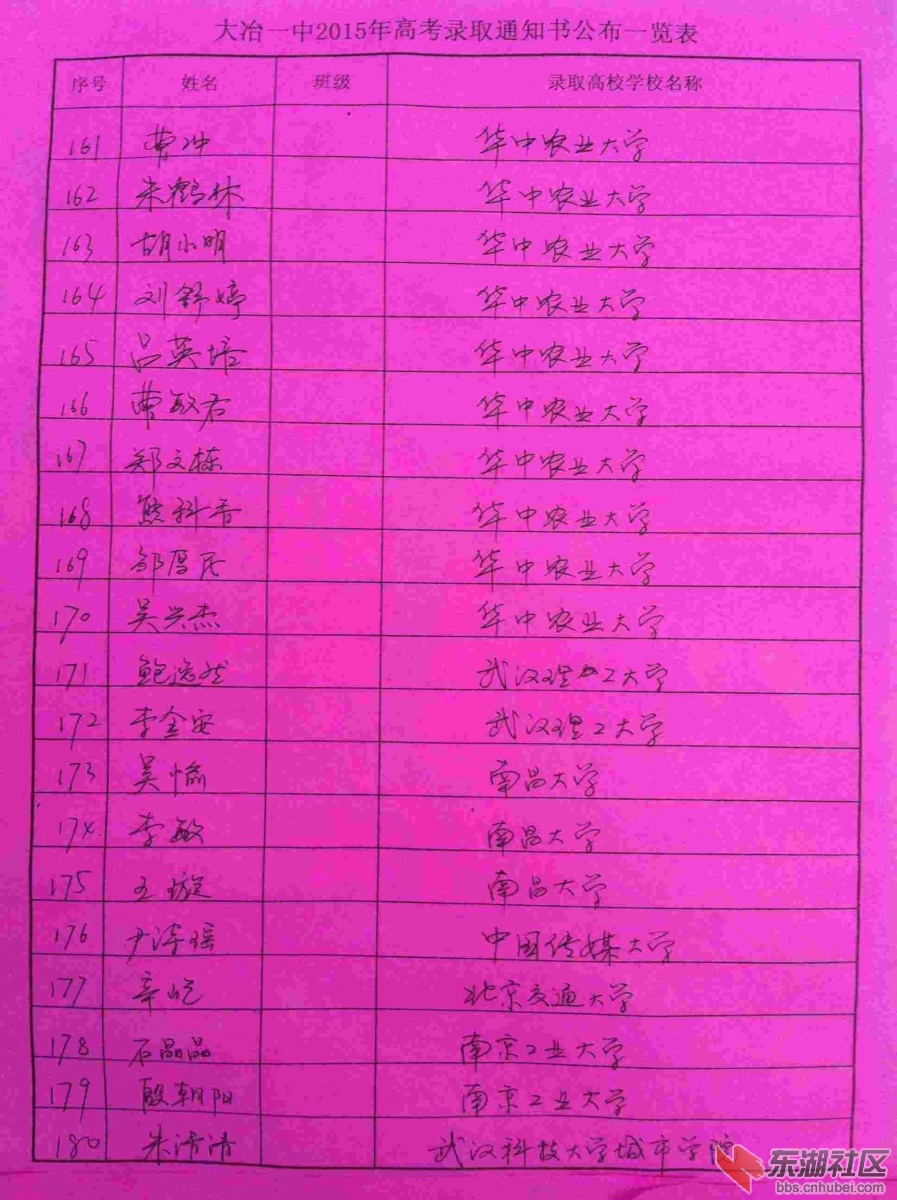 大冶一中2015年高考录取通知书公布一览表
序号 姓名 班级 录取高校学校名称
161 曹冲 华中农业大学
162 朱鹤林 华中农业大学
163 胡小明 华中农业大学
164 刘舒婷 华中农业大学
165 吕英培 华中农业大学
166 曹敏君 华中农业大学
167 郑文栋 华中农业大学
168 熊科香 华中农业大学
169 邹厚民 华中农业大学
170 吴兴杰 华中农业大学
171 鲍逸然 武汉理工大学
172 李金安 武汉理工大学
173 吴愉 南昌大学
174 李敏 南昌大学
175 王璇 南昌大学
176 尹涛瑶 中国传媒大学
177 辛屹 北京交通大学
178 石晶晶 南京工业大学
179 殷朝阳 南京工业大学
180 朱清清 武汉科技大学城市学院
东湖社区
bbs.cnhubei.com